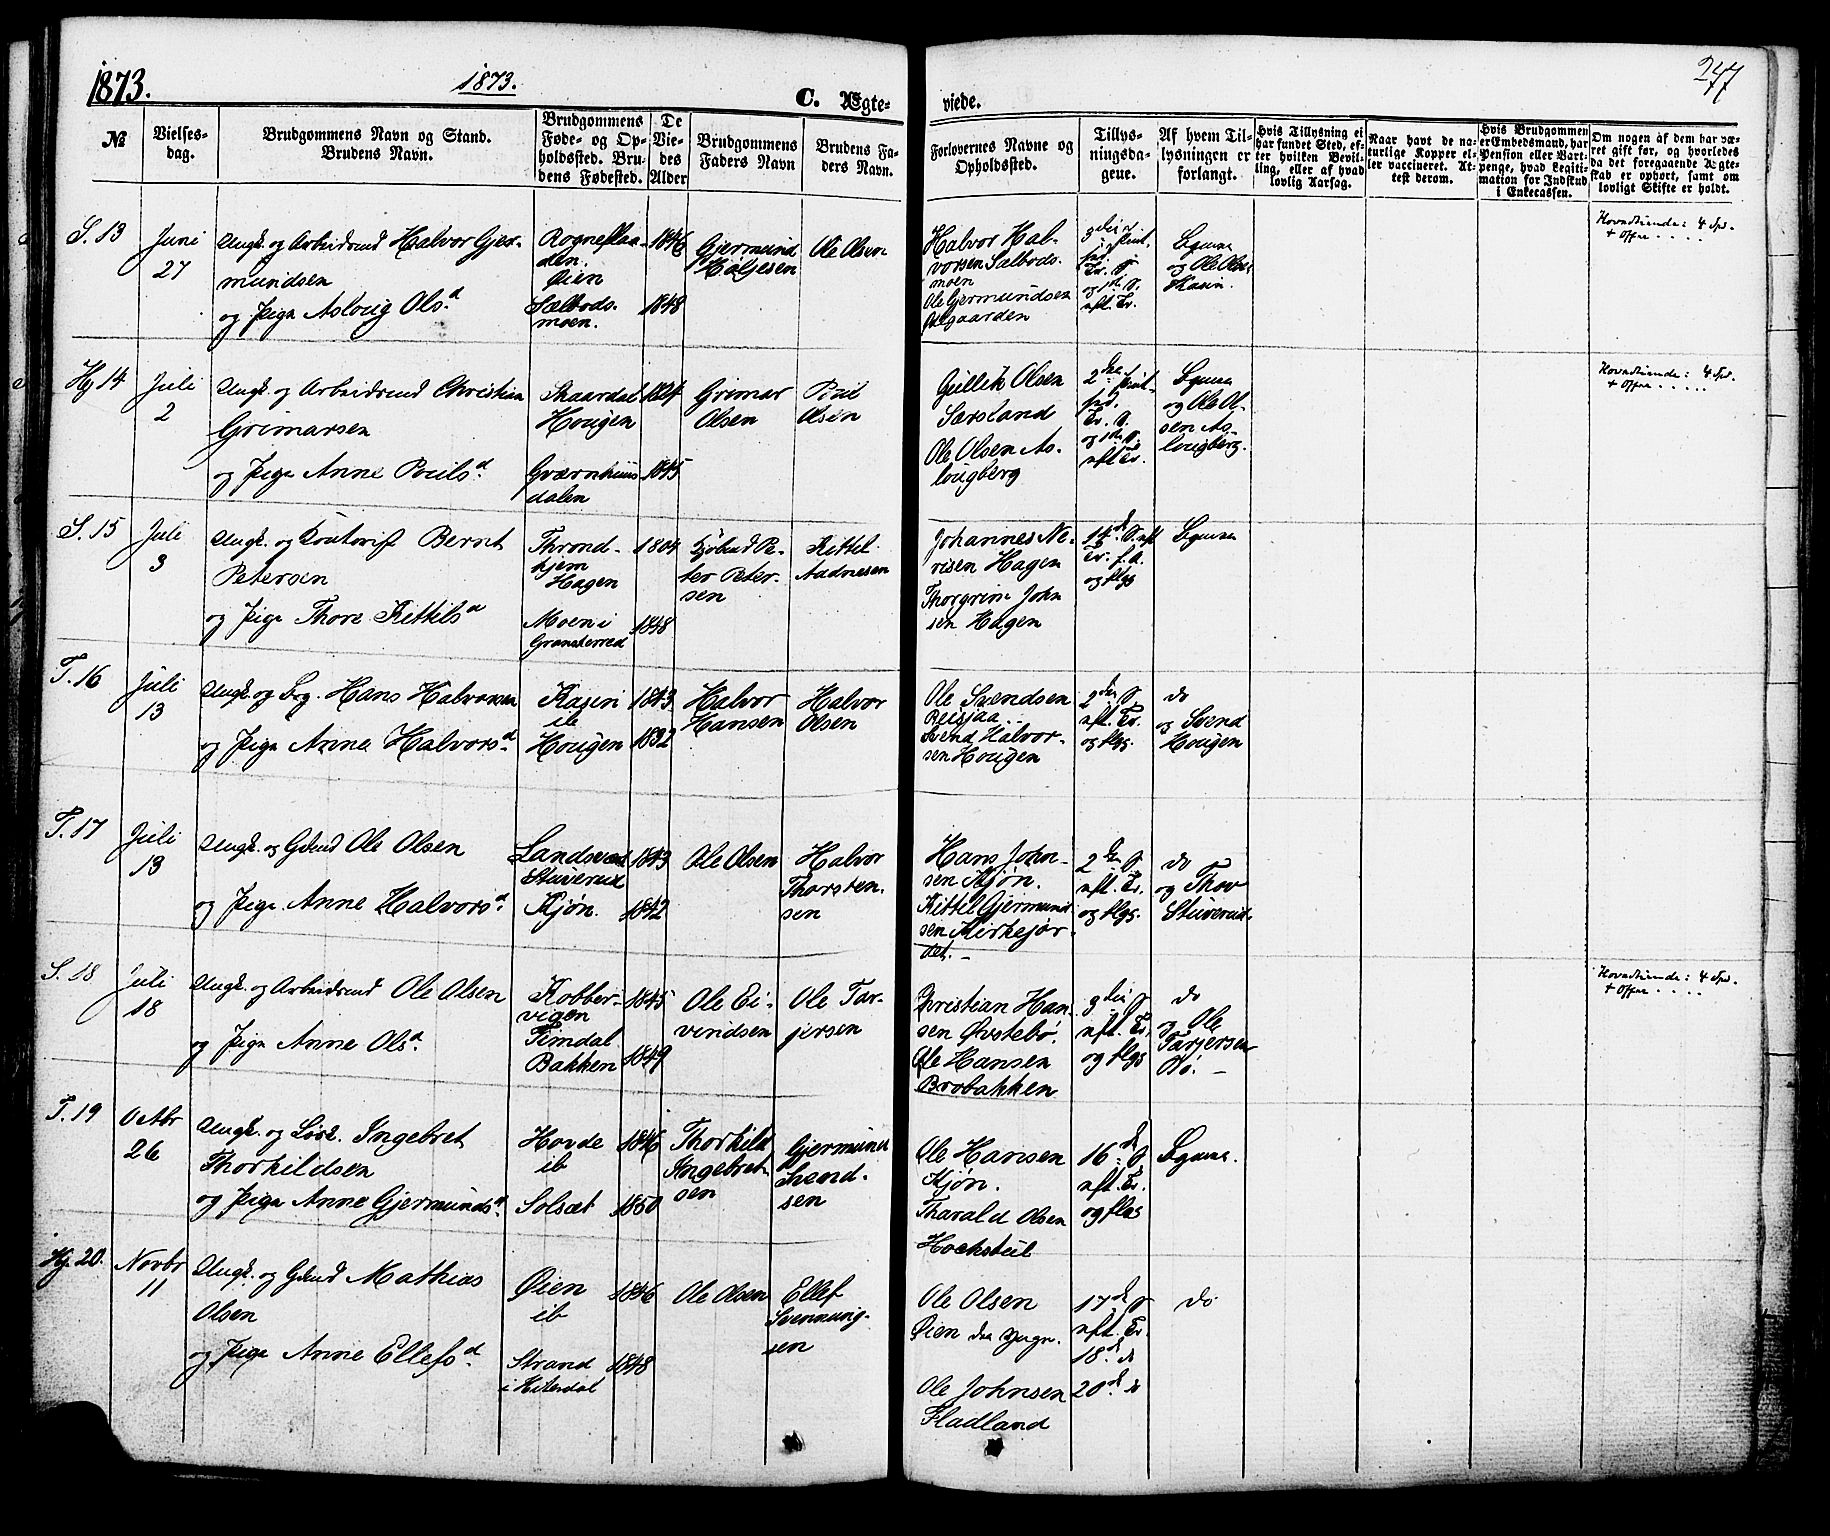 1873.
1873.
C. Ægte-
viede.
247
№
Vielses-
dag.
Brudgommens Navn og Stand.
Brudens Navn.
Brudgommens
Føde- og Op-
holdssted. Bru-
dens Fødested.
De
Vie-
des
Alder
Brudgommens
Faders Navn
Brudens Fa-
ders Navn.
Forlovernes Navne og
Opholdssted.
Tillys-
ningsda-
gene.
Af hvem Til-
lysningen er
forlangt.
Hvis Tillysning ei
har fundet Sted, ef-
ter hvilken Bevil-
ling, eller af hvad
lovlig Aarsag.
Naar havt de na-
turlige Kopper el-
ler vaccineret. At-
test derom.
Hvis Brudgommen
er Embedsmand, har
Pension eller Vart-
penge, hvad Legiti-
mation for Indskud
i Enkecassen.
Om nogen af dem har væ-
ret gift før, og hvorledes
da det foregaaende Ægte-
skab er ophørt, samt om
lovligt Skifte er holdt.
S. 13
Juni
27
Ungk. og Arbeidsmd Halvor Gjer-
mundsen
og Pige Asloug Olsd.
Rogneflaa-
den.
Øien
Sælbods-
moen.
1846
1848
Gjermund
Holjesen
Ole Olsen
Halvor Hal-
vorsen Sælbods-
moen
Ole Gjermundsen
Ødegaarden
og Ole Ols.
Hovedtiende: 4 Spd.
+ Offer . . . .
Hg. 14
Juli
2
Ungk. og Arbeidsmd Christian
Grimarsen
og Pige Anne Pouls d.
Skaardal
Hougen
Gværnhuus-
dalen
1824
1845
Grimar
Olsen
Poul
Olsen
Gullik Olsen
Særsland
Ole Olsen As-
lougberg
og Ole Ol-
sen As-
lougberg.
Hovedtiende: 4 Spd.
+ Offer . . . . .
S. 15
Juli
3
Ungk. og Contorist Bernt
Petersen
og Pige Thore Kittils d
Thrond-
hjem
Hagen
Moen i
Gransherred
1804
1848
Kjøbmd Pe-
ter Peter-
sen
Kittil
Aadnesen
Johannes Ne-
risen Hagen
Thorgrim John
sen Hagen
14de S. eft
Tr. f. A.
og flgs
Bgmen
T. 16
Juli
13
Ungk. og Brg. Hans Halvorsen
og Pige Anne Halvors d.
Kasin
ib
Hougen
1843
1832
Halvor
Hansen
Halvor
Olsen
Ole Svendsen
Reisjaa
Svend Halvor-
sen Hougen
2den S.
eft. Tr.
og flgs.
do
og Svend
Hougen
T. 17
Juli
13
Ungk. og Gdmd Ole Olsen
og Pige Anne Halvors d.
Landsverk
Stuverud
Kjøn.
1843
1842
Ole Olsen
Halvor
Thorsten-
sen
Hans John-
sen Kjøn.
Kittil Gjermund
sen Kirkejor-
det. -
2den S.
eft. Tr.
og flgs.
do
og Thov
Stuverud.
S. 18
Juli
18
Ungk. og Arbeidsmd Ole Olsen
og Pige Anne Ols d.
Kobber-
vigen
Timdal
Bakken
1845
1849
Ole Ei-
vindsen
Ole Tar-
jersen
Christian Han-
sen Øvstebø.
Ole Hansen
Brobakken
3die S.
eft. Tr.
og flgs
do
og Ole
Tarjersen
Bø. -
Hovedtiende: 4 Spd.
+ Offer . . . .
T. 19
Octbr
26
Ungk. og Løsk. Ingebret
Thorkildsen
og Pige Anne Gjermunds d.
Hovde
ib
Solsæt
1846
1850
Thorkild
Ingebret-
sen
Gjermund
Svend-
sen
Ole Hansen
Kjøn.
Tharald Olsen
Hockstul
16de S.
eft. Tr.
og flgs
Bgmen.
Hg. 20.
Novbr
11
Ungk. og Gdmd Mathias
Olsen
og Pige Anne Ellefs d.
Øien
ib
Strand
i Hiterdal
1846
1848
Ole Olsen
Ellef
Svennung-
sen
Ole Olsen
Øien den yngr.
Ole Johnsen
Fladland
17de S.
eft. Tr.
18de do
20de do
do